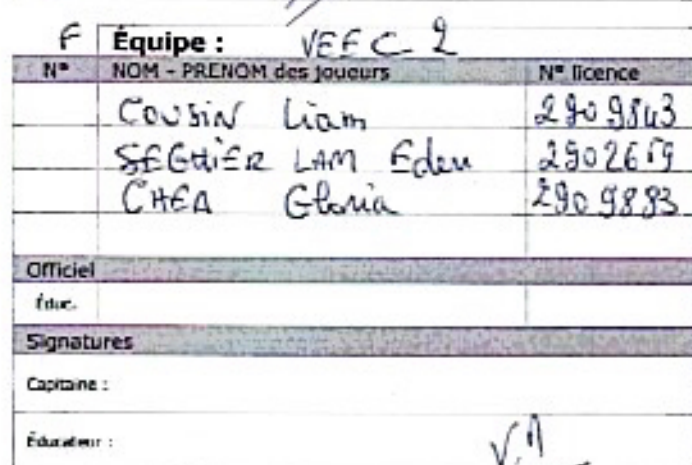 F Équipe : VEFC 2
N° NOM - PRENOM des joueurs N° licence
COUSIN Liam 2909843
SEGHIER LAM Eden 2902659
CHEA Gloria 2909893
Officiel
Éduc.
Signatures
Capitaine :
Éducateur :